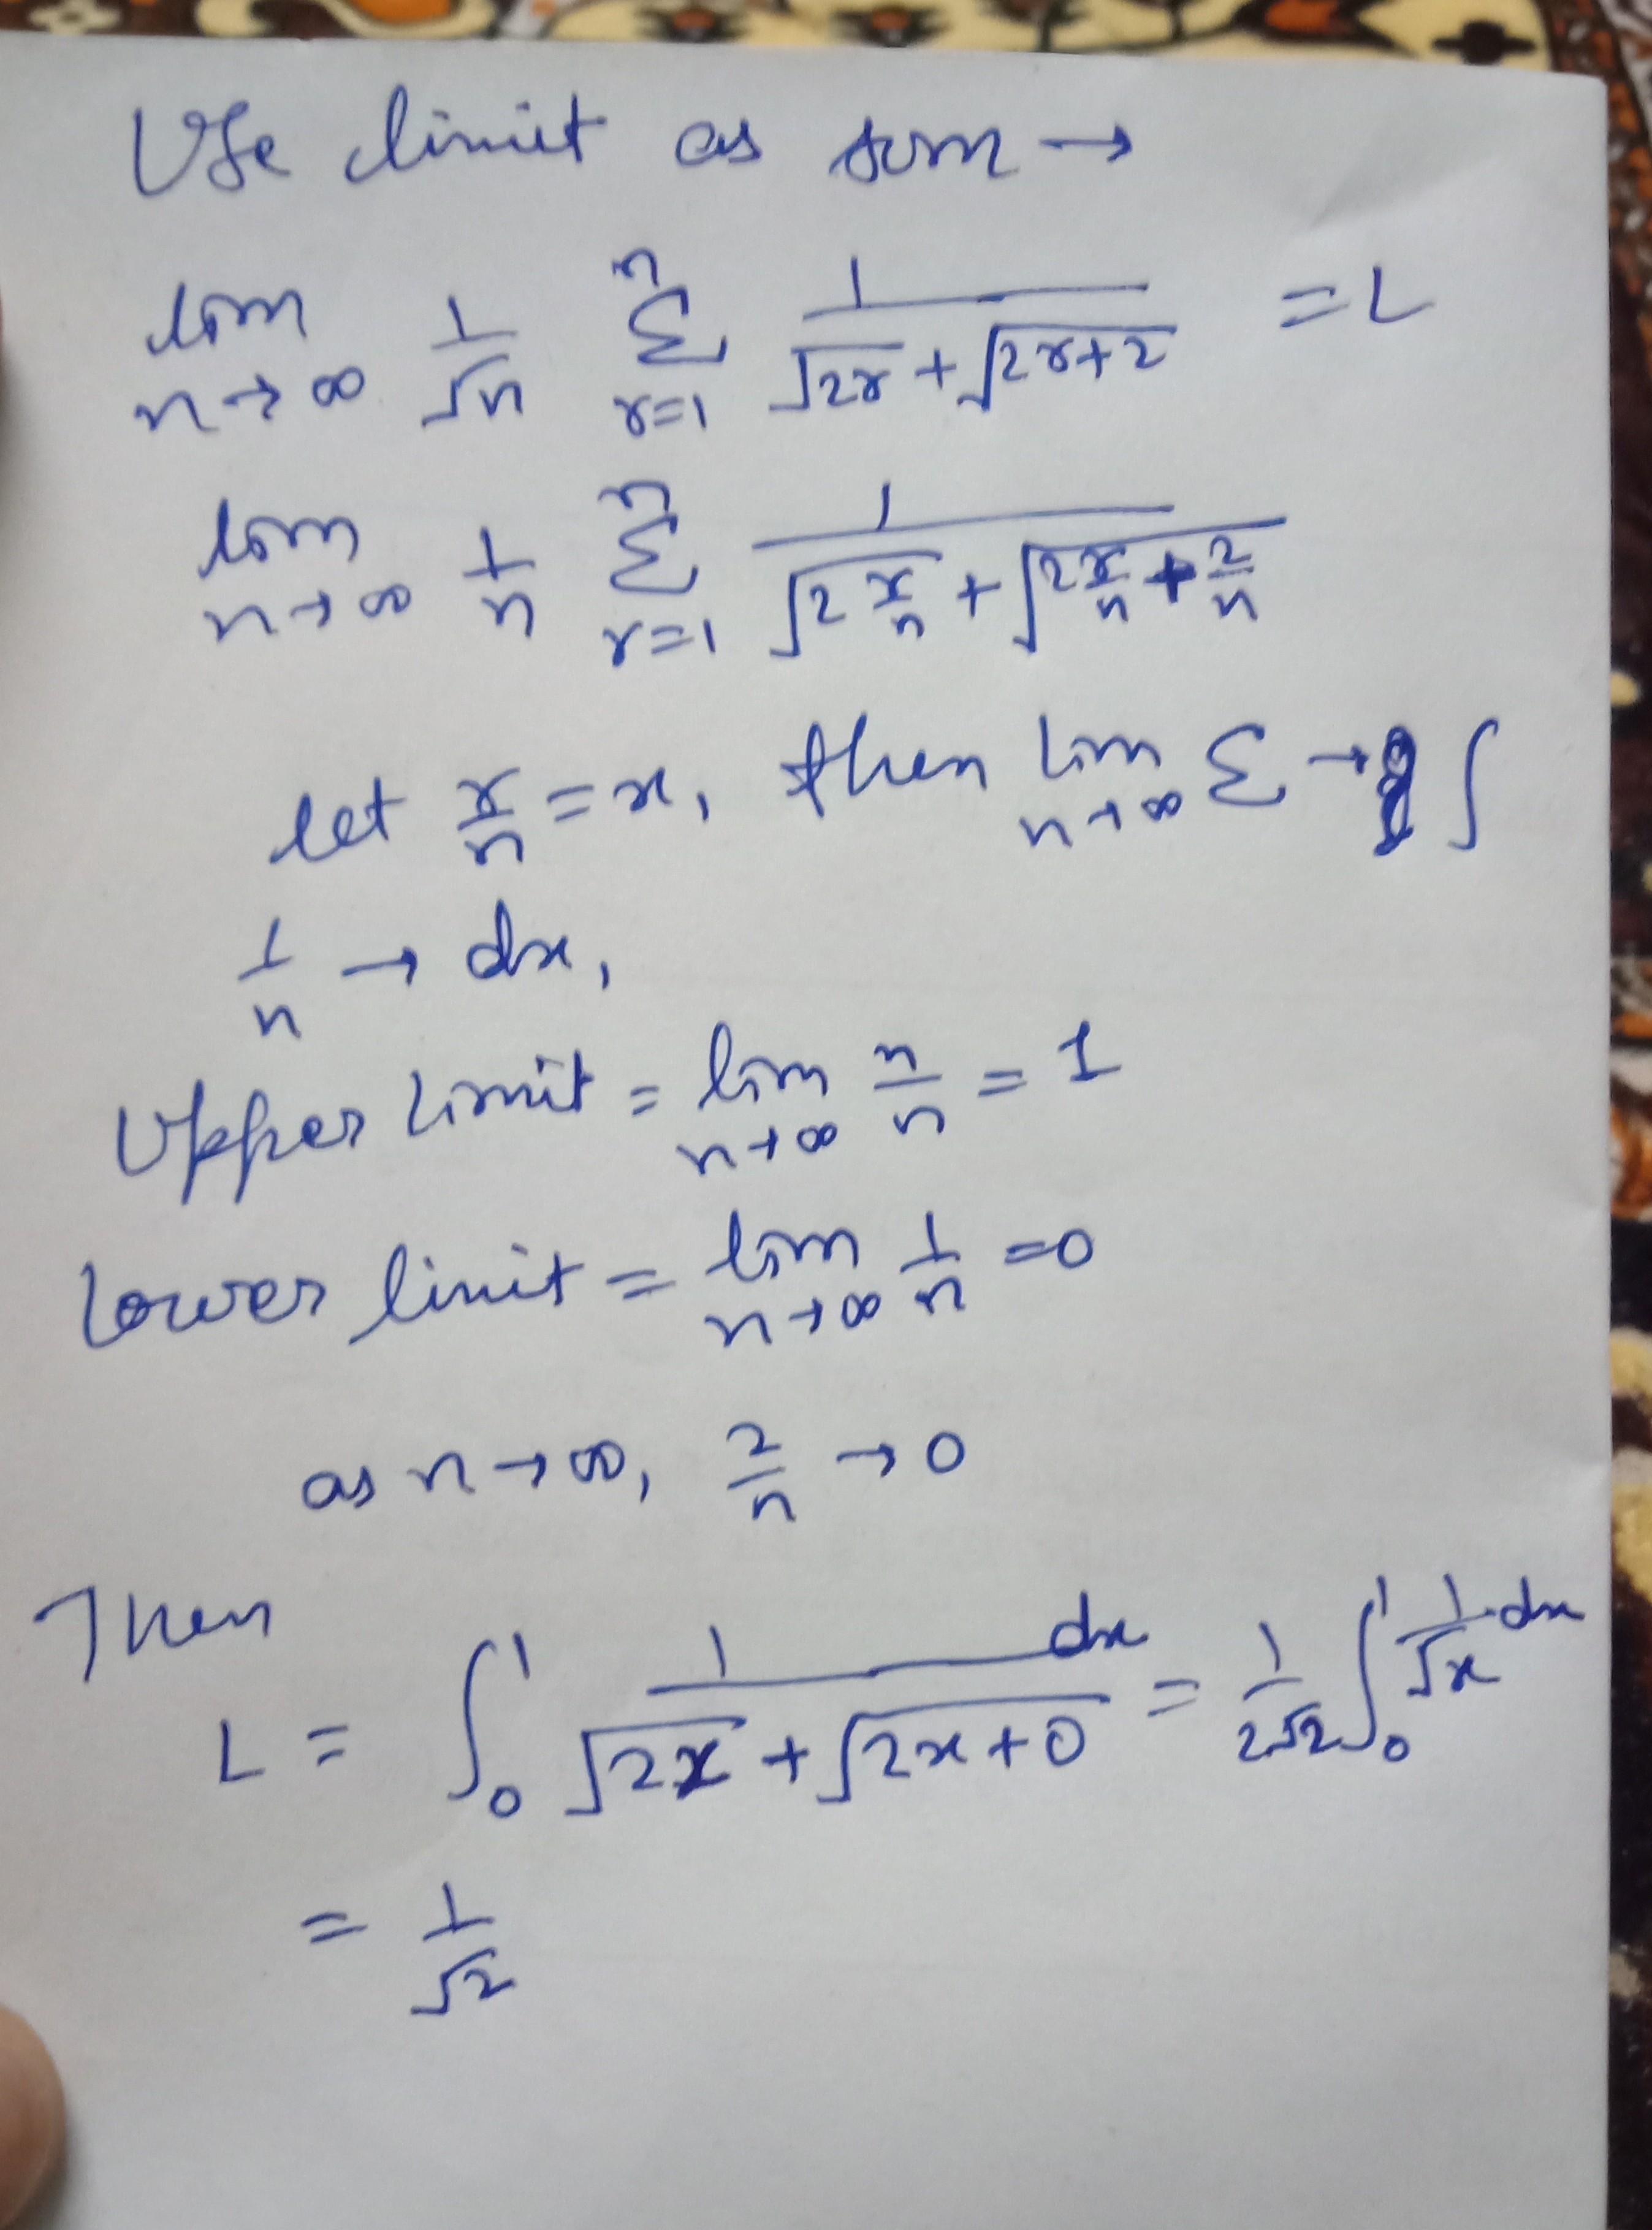 Use limit as sum →
lim n→∞ 1/√n Σ r=1 n 1/(√2r + √2r+2) = L
lim n→∞ 1/n Σ r=1 n 1/(√2 r/n + √2 r/n + 2/n)
let r/n = x, then lim n→∞ Σ → ∫
1/n → dx,
Upper limit = lim n→∞ n/n = 1
lower limit = lim n→∞ 1/n = 0
as n→∞, 2/n → 0
Then
L = ∫₀¹ 1/(√2x + √2x+0) dx = 1/2√2 ∫₀¹ 1/√x dx
= 1/√2